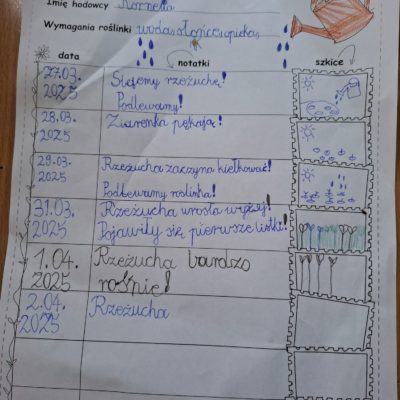 Imię hodowcy Kornelia
Wymagania roślinki woda, słońce, opieka,
data notatki szkice
27.03. Siejemy rzeżuchę!
2025 Podlewamy!
28.03. Ziarenka pękają!
2025
29.03. Rzeżucha zaczyna kiełkować!
2025 Podlewamy roślinkę!
31.03. Rzeżucha urosła wyżej!
2025 Pojawiły się pierwsze listki!
1.04. Rzeżucha bardzo
2025 rośnie!
2.04. Rzeżucha
2025